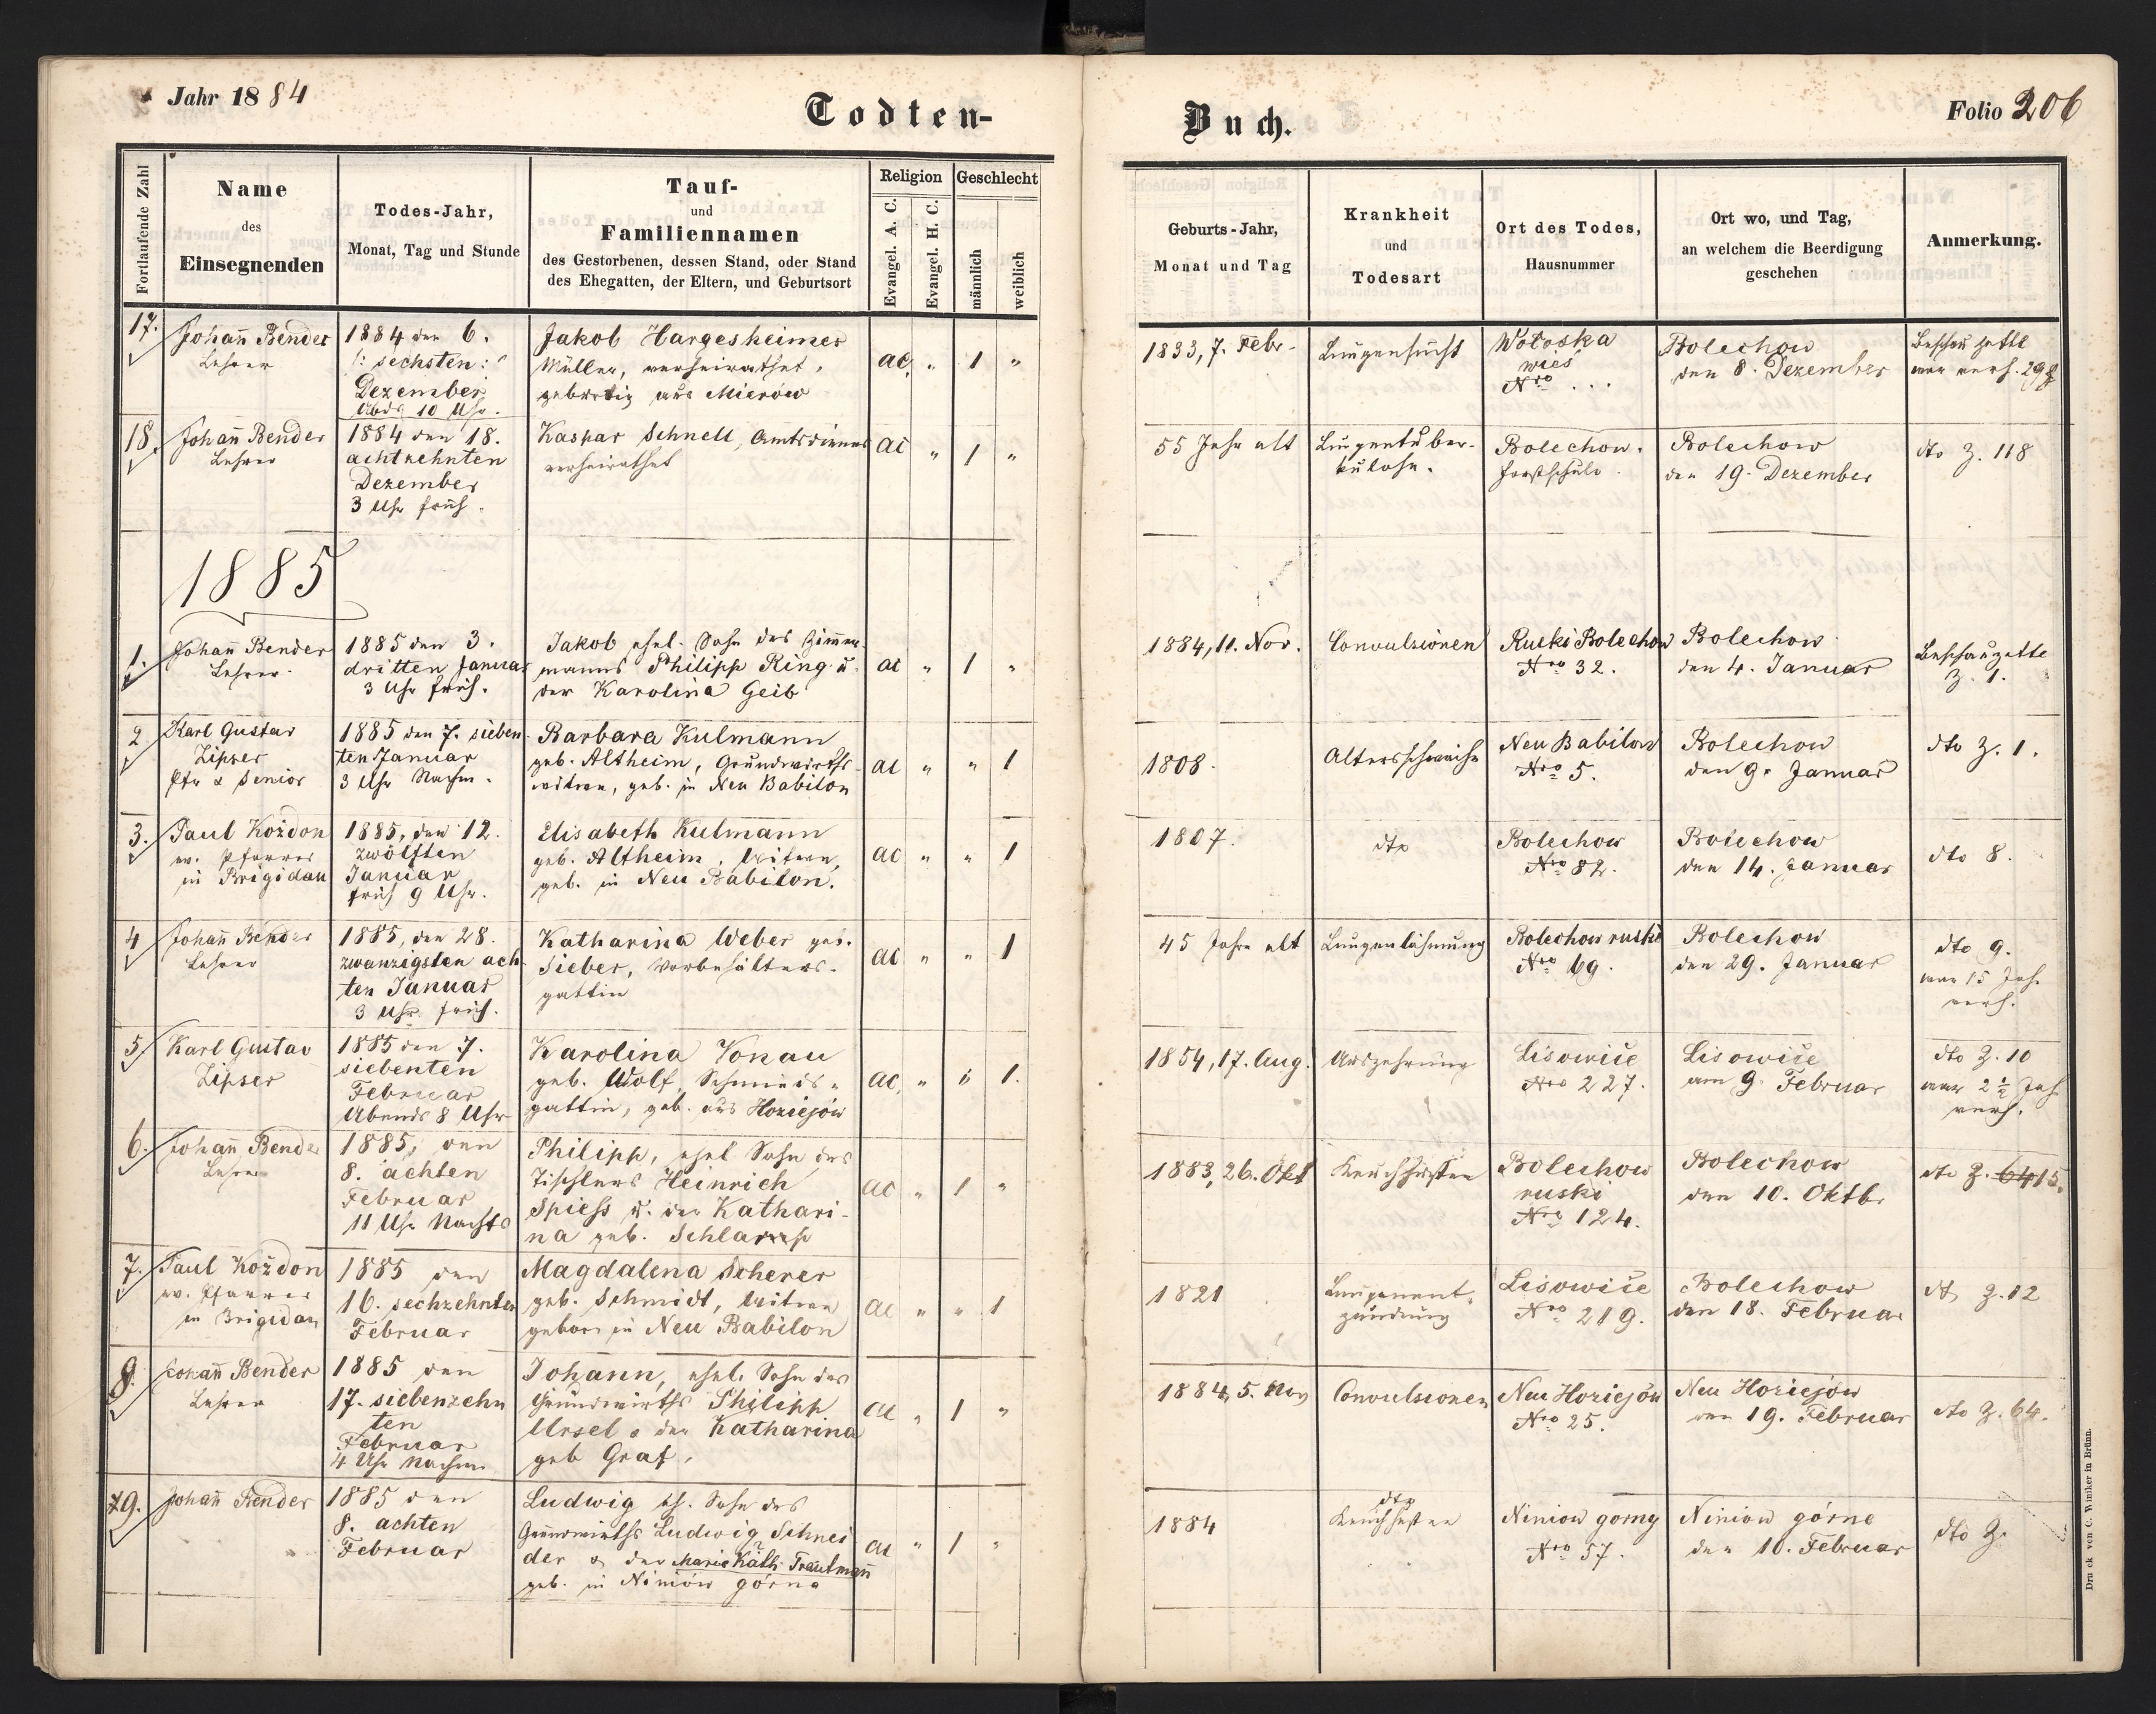 Jahr 1884
Todten-
Buch.
Folio 206
Fortlaufende Zahl
Name
des
Einsegnenden
Todes-Jahr,
Monat, Tag und Stunde
Tauf-
und
Familiennamen
des Gestorbenen, dessen Stand, oder Stand
des Ehegatten, der Eltern, und Geburtsort
Religion
Evangel. A. C.
Evangel. H. C.
Geschlecht
männlich
weiblich
Geburts-Jahr,
Monat und Tag
Krankheit
und
Todesart
Ort des Todes,
Hausnummer
Ort wo, und Tag,
an welchem die Beerdigung
geschehen
Anmerkung.
17.
Johañ Bender
Lehrer
1884 den 6.
/: sechsten :/
Dezember
Abds 10 Uhr.
Jakob Hargesheimer
Müller, verheirathet,
gebürtig aus Mierów
ac
"
1
"
1833, 7. Febr.
Lungensucht
Wołoska
wieś
Nro ...
Bolechow
den 8. Dezember
Beschauzettl
war verh. 29 J
18.
Johañ Bender
Lehrer
1884 den 18.
achtzehnten
Dezember
3 Uhr früh.
Kaspar Schnell, Amtsdiener
verheirathet
ac
"
1
"
55 Jahr alt
Lungentuber-
kulose.
Bolechow.
Forstschule.
Bolechow
den 19. Dezember
dto Z. 118
1885
1.
Johañ Bender
Lehrer
1885 den 3.
dritten Januar
3 Uhr früh.
Jakob, ehel. Sohn des Zimmer-
manns Philipp Ring u.
der Karolina Geib
ac
"
1
"
1884, 11. Nov.
Convulsionen
Ruski Bolechow
Nro 32.
Bolechow
den 4. Januar
Beschauzettl
Z. 1.
2
Karl Gustav
Zipser
Pfr & Senior
1885 den 7. sieben-
ten Januar
3 Uhr Nachm.
Barbara Kulmann
geb. Altheim, Grundwirths-
witwe, geb. in Neu Babilon
ac
"
"
1
1808.
Altersschwäche
Neu Babilon
Nro 5.
Bolechow
den 9. Januar
dto Z. 1.
3.
Paul Kożdon
ev. Pfarrer
in Brigidau
1885, den 12.
zwölften
Januar
früh 9 Uhr.
Elisabeth Kulmann
geb. Altheim, Witwe,
geb. in Neu Babilon.
ac
"
"
1
1807.
dto
Bolechow
Nro 82.
Bolechow
den 14. Januar
dto 8.
4
Johañ Bender
Lehrer
1885, den 28.
zwanzigsten ach-
ten Januar
3 Uhr früh.
Katharina Weber geb.
Sieber, Vorbehälters-
gattin
ac
"
"
1
45 Jahre alt
Lungenlähmung
Bolechow ruski
Nro 69.
Bolechow
den 29. Januar
dto 9.
war 15 Jahr
verh.
5
Karl Gustav
Zipser
1885 den 7.
siebenten
Februar
Abends 8 Uhr
Karolina Vonau
geb. Wolf, Schmieds-
gattin, geb. aus Hoziejów
ac
"
"
1.
1854, 17. Aug.
Auszehrung
Lisowice
Nro 227.
Lisowice
am 9. Februar
dto Z. 10
war 2 1/2 Jahr
verh.
6.
Johañ Bender
Lehrer
1885, den
8. achten
Februar
11 Uhr Nachts
Philipp, ehel Sohn des
Tischlers Heinrich
Spiess u. der Kathari-
na geb.
ac
"
1
"
1883, 26. Okt
Keuchhusten
Bolechow
ruski
Nro 124.
Bolechow
den 10. Oktbr
dto Z. 64 15.
7.
Paul Kożdon
ev. Pfarrer
in Brigidau
1885 den
16. sechzehnten
Februar
Magdalena Scherer
geb. Schmidt, Witwe
geboren in Neu Babilon
ac
"
"
1
1821
Lungenent-
zündung
Lisowice
Nro 219.
Bolechow
den 18. Februar
dto Z. 12
8.
Johañ Bender
Lehrer
1885 den
17. siebenzehn
ten
Februar
4 Uhr Nachm
Johann, ehel. Sohn des
Grundwirths Philipp
Ursel & der Katharina
geb Graf.
ac
"
1
"
1884, 5. Nov
Convulsionen
Neu Hoziejów
Nro 25.
Neu Hoziejów
den 19. Februar
dto Z. 64.
9.
Johañ Bender
1885 den
8. achten
Februar
Ludwig eh. Sohn des
Grundwirths Ludwig Schnei
der & der Marie Kath. Trautmañ
geb. in Niniów górna
ac
"
1
"
1884
dto
Keuchhusten
Niniow gorny
Nro 57.
Niniow górne
den 10. Februar
dto Z.
Druck von C. Winiker in Brünn.